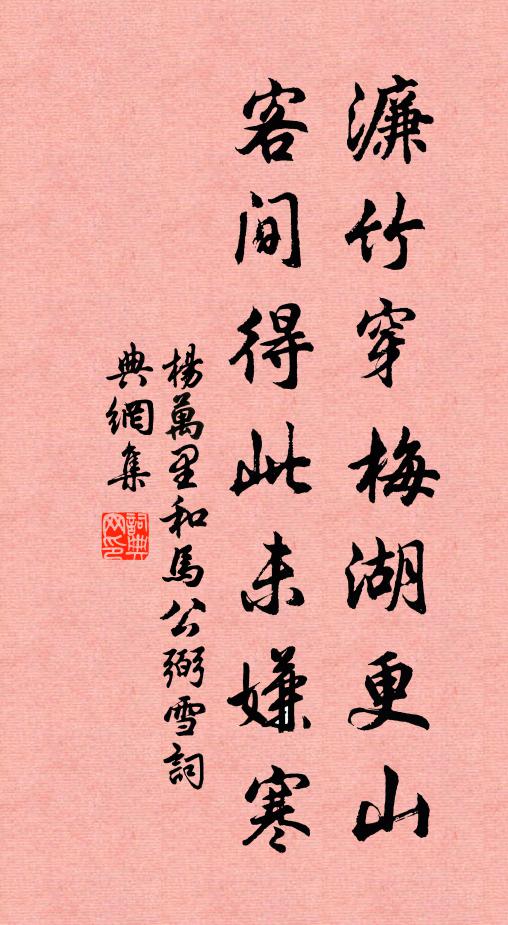 濂竹穿梅湖更山
客间得此未嫌寒
楊萬里和馬公弼雪詞
典網集
詞典网印